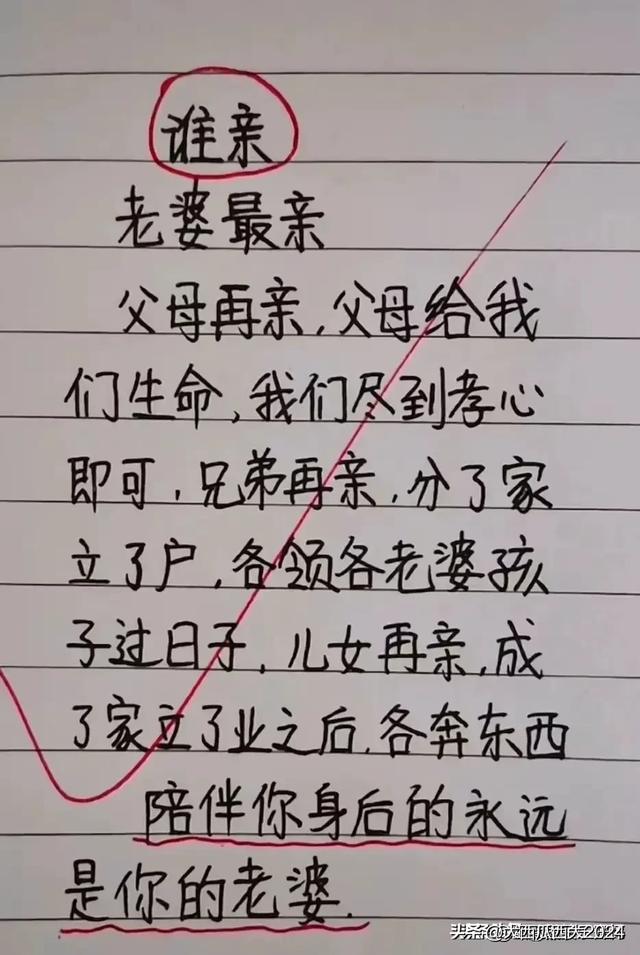 谁亲
老婆最亲
父母再亲,父母给我
们生命,我们尽到孝心
即可,兄弟再亲,分了家
立了户,各领各老婆孩
子过日子,儿女再亲,成
了家立了业之后,各奔东西
陪伴你身后的永远
是你的老婆.
头条
2024